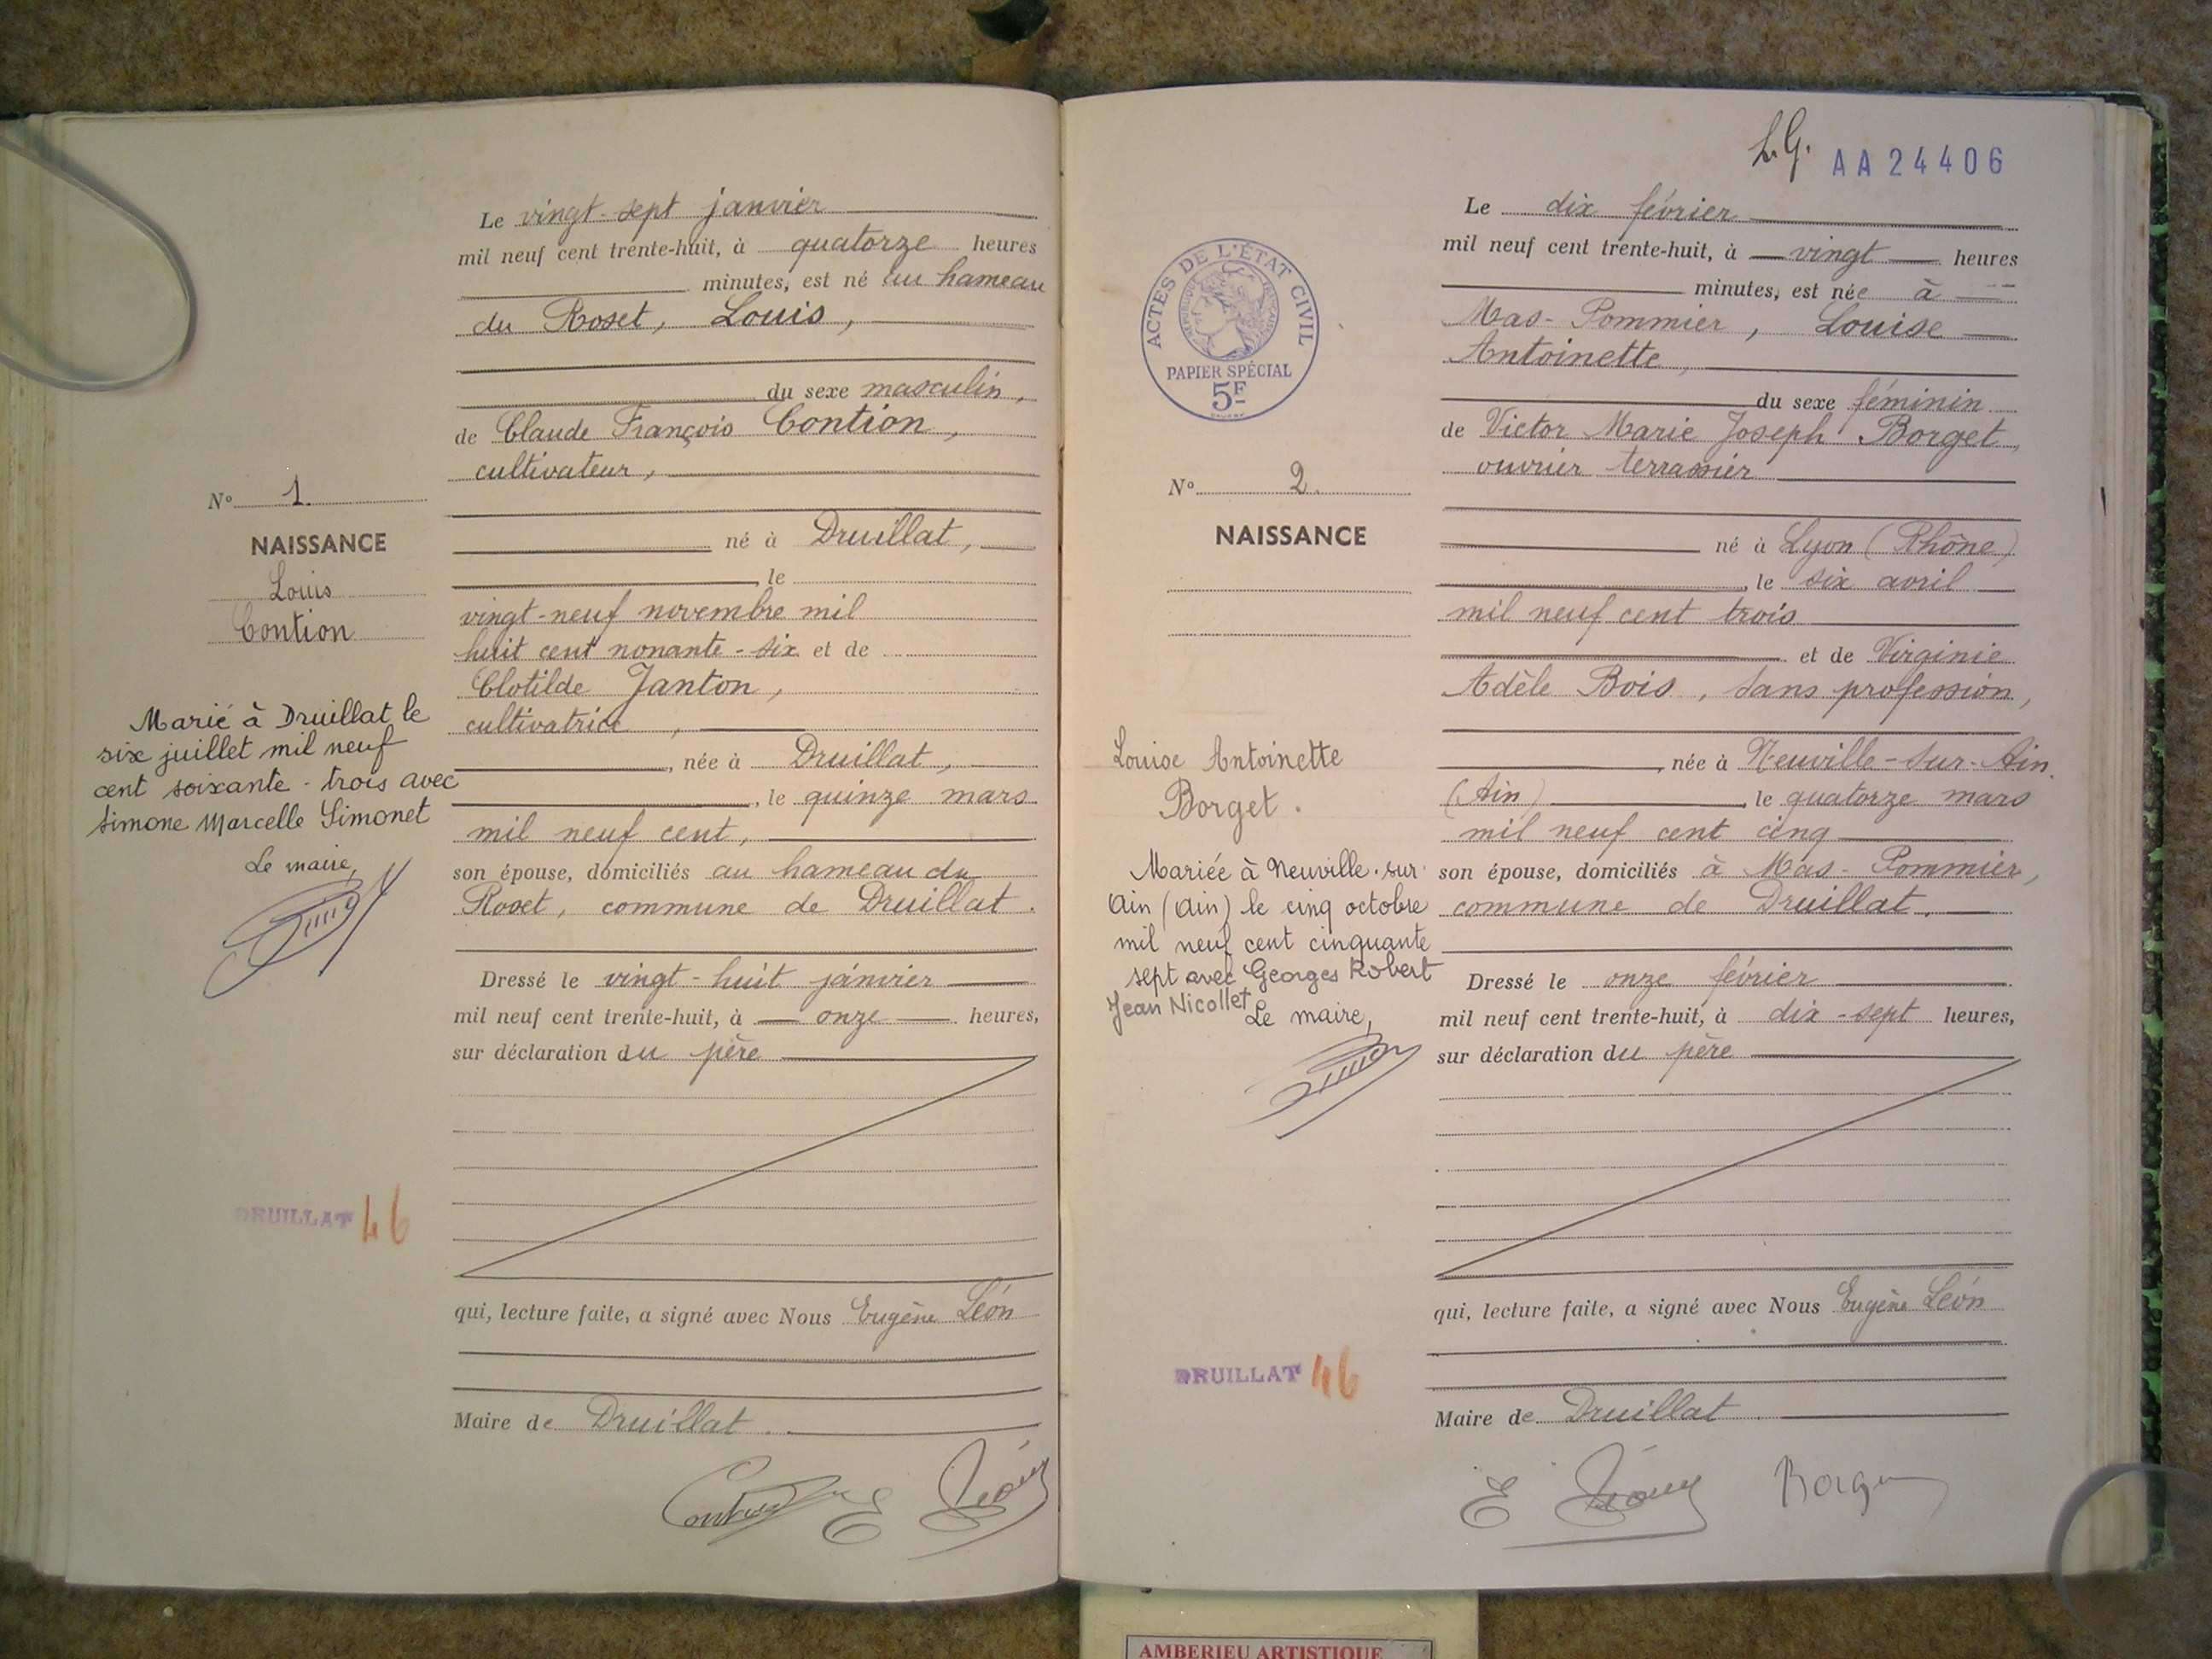 Le vingt-sept janvier
mil neuf cent trente-huit, à quatorze heures
minutes, est né au hameau
du Roset, Louis,
du sexe masculin,
de Claude François Contion,
cultivateur,
né à Druillat,
, le
vingt-neuf novembre mil
huit cent nonante-six et de
Clotilde Janton,
cultivatrice,
, née à Druillat,
, le quinze mars
mil neuf cent,
son épouse, domiciliés au hameau du
Roset, commune de Druillat.
Dressé le vingt-huit janvier
mil neuf cent trente-huit, à onze heures,
sur déclaration du père
qui, lecture faite, a signé avec Nous Eugène Léon
Maire de Druillat.
N° 1.
NAISSANCE
Louis
Contion
Marié à Druillat le
six juillet mil neuf
cent soixante-trois avec
Simone Marcelle Simonet
Le maire,
DRUILLAT 46
L.G. AA24406
Le dix février
mil neuf cent trente-huit, à vingt heures
minutes, est née à
Mas-Pommier, Louise
Antoinette,
du sexe féminin
de Victor Marie Joseph Borget,
ouvrier terrassier
né à Lyon (Rhône)
, le six avril
mil neuf cent trois
et de Virginie
Adèle Bois, sans profession,
, née à Neuville-sur-Ain.
(Ain), le quatorze mars
mil neuf cent cinq
son épouse, domiciliés à Mas-Pommier,
commune de Druillat.
Dressé le onze février
mil neuf cent trente-huit, à dix-sept heures,
sur déclaration du père
qui, lecture faite, a signé avec Nous Eugène Léon
Maire de Druillat
E Léon Borget
ACTES DE L'ÉTAT CIVIL
RÉPUBLIQUE FRANÇAISE
PAPIER SPÉCIAL
5F
N° 2.
NAISSANCE
Louise Antoinette
Borget.
Mariée à Neuville-sur-
Ain (Ain) le cinq octobre
mil neuf cent cinquante
sept avec Georges Robert
Jean Nicollet Le maire,
DRUILLAT 46
AMBERIEU ARTISTIQUE